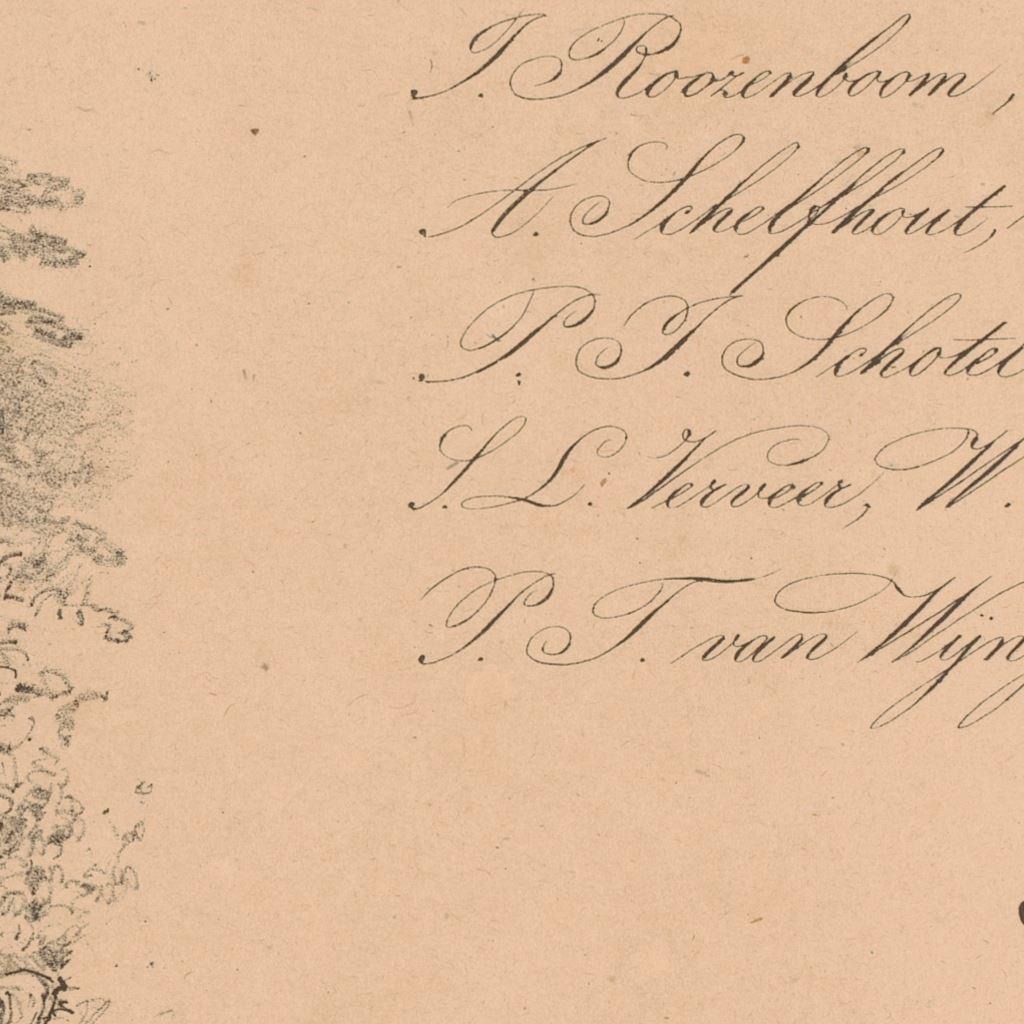 J. Roozenboom,
A. Schelfhout,
P. J. Schotel
S. L. Verveer, W.
P. T. van Wÿn